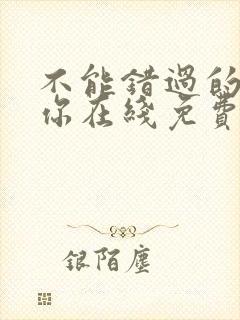 不能错過的
你在綫免費
银陌塵